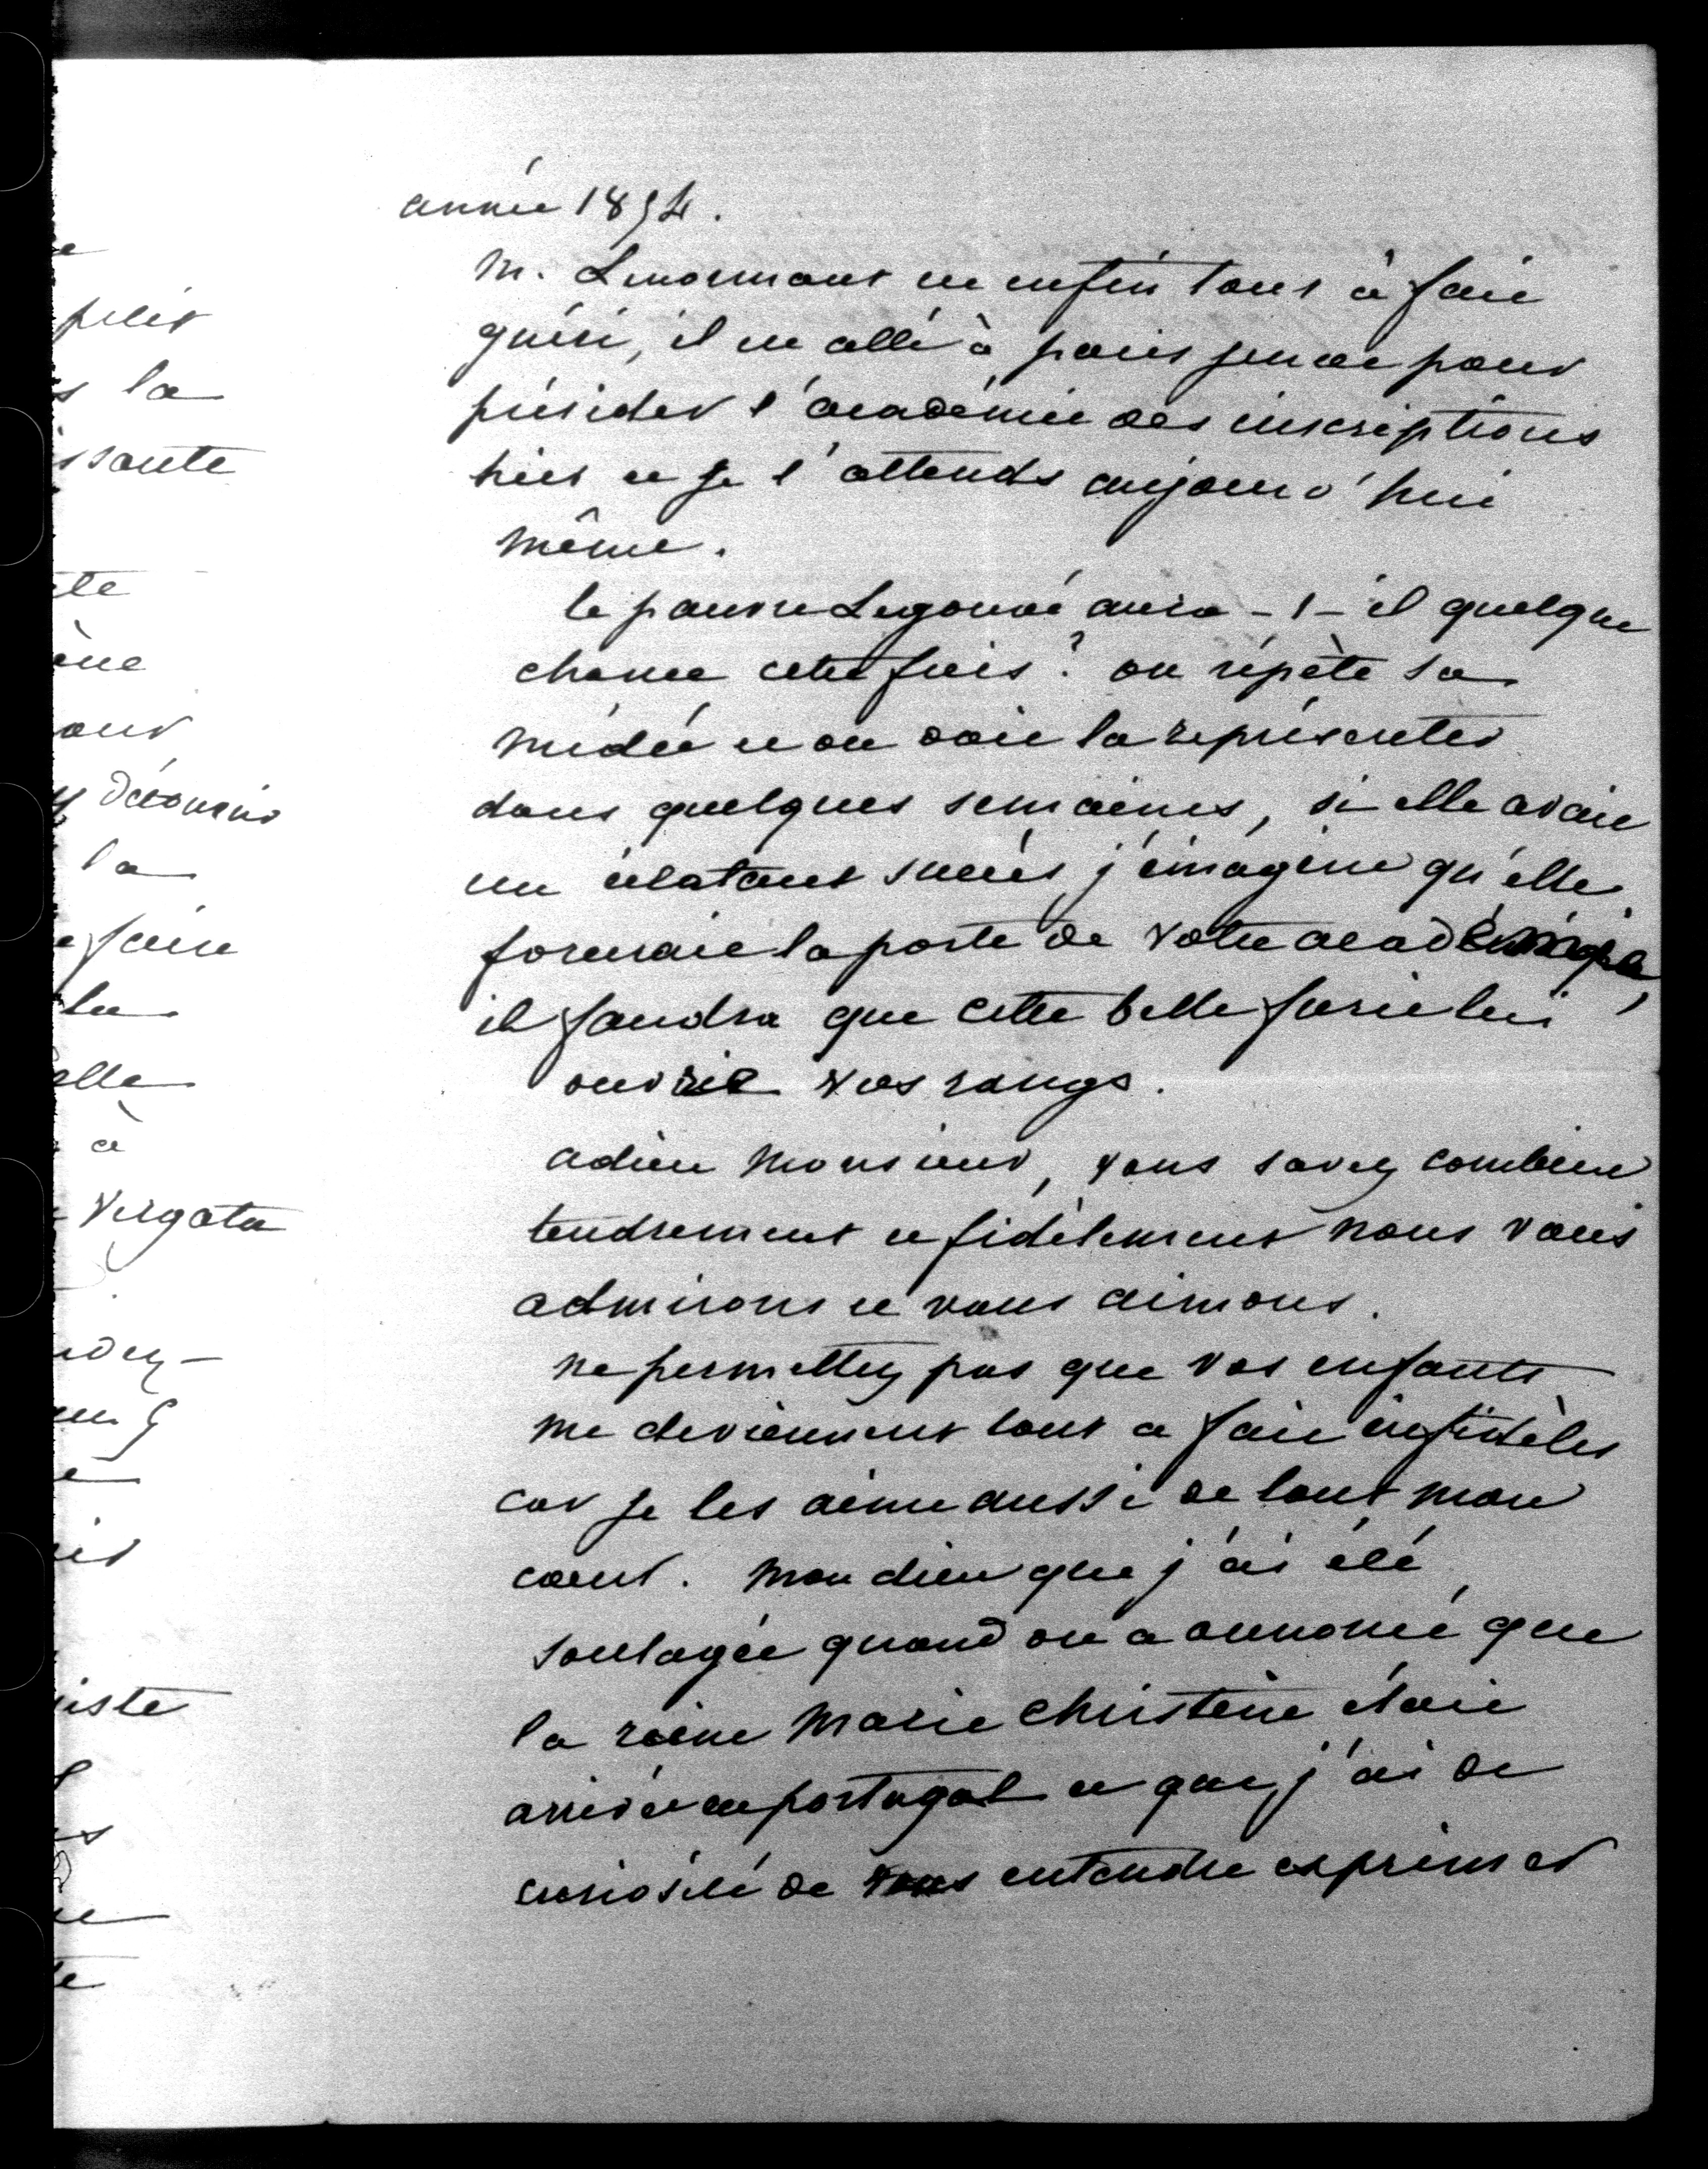 année 1854.
M. Lenormant est enfin tout à fait
guéri, il est allé à paris pour
présider l'académie des inscriptions
hier et je l'attends aujourd'hui
même.
le pauvre Legouvé aura-t-il quelque
chance cette fois? on répète sa
médée et on doit la représenter
dans quelques semaines, si elle avait
un éclatant succès j'imagine qu'elle
forcerait la porte de votre académie,
il faudra que cette belle furie lui
ouvrit vos rangs.
adieu Monsieur, vous savez combien
tendrement et fidèlement nous vous
admirons et vous aimons.
ne permettez pas que vos enfants
me deviennent tout a fait infidèles
car je les aime aussi de tout mon
coeur. mon dieu que j'ai été
soulagée quand on a annoncé que
la reine Marie Christine était
arrivée en portugal et que j'ai de
curiosité de vous entendre exprimer
petit
la
la
faire
elle
à
Vergata